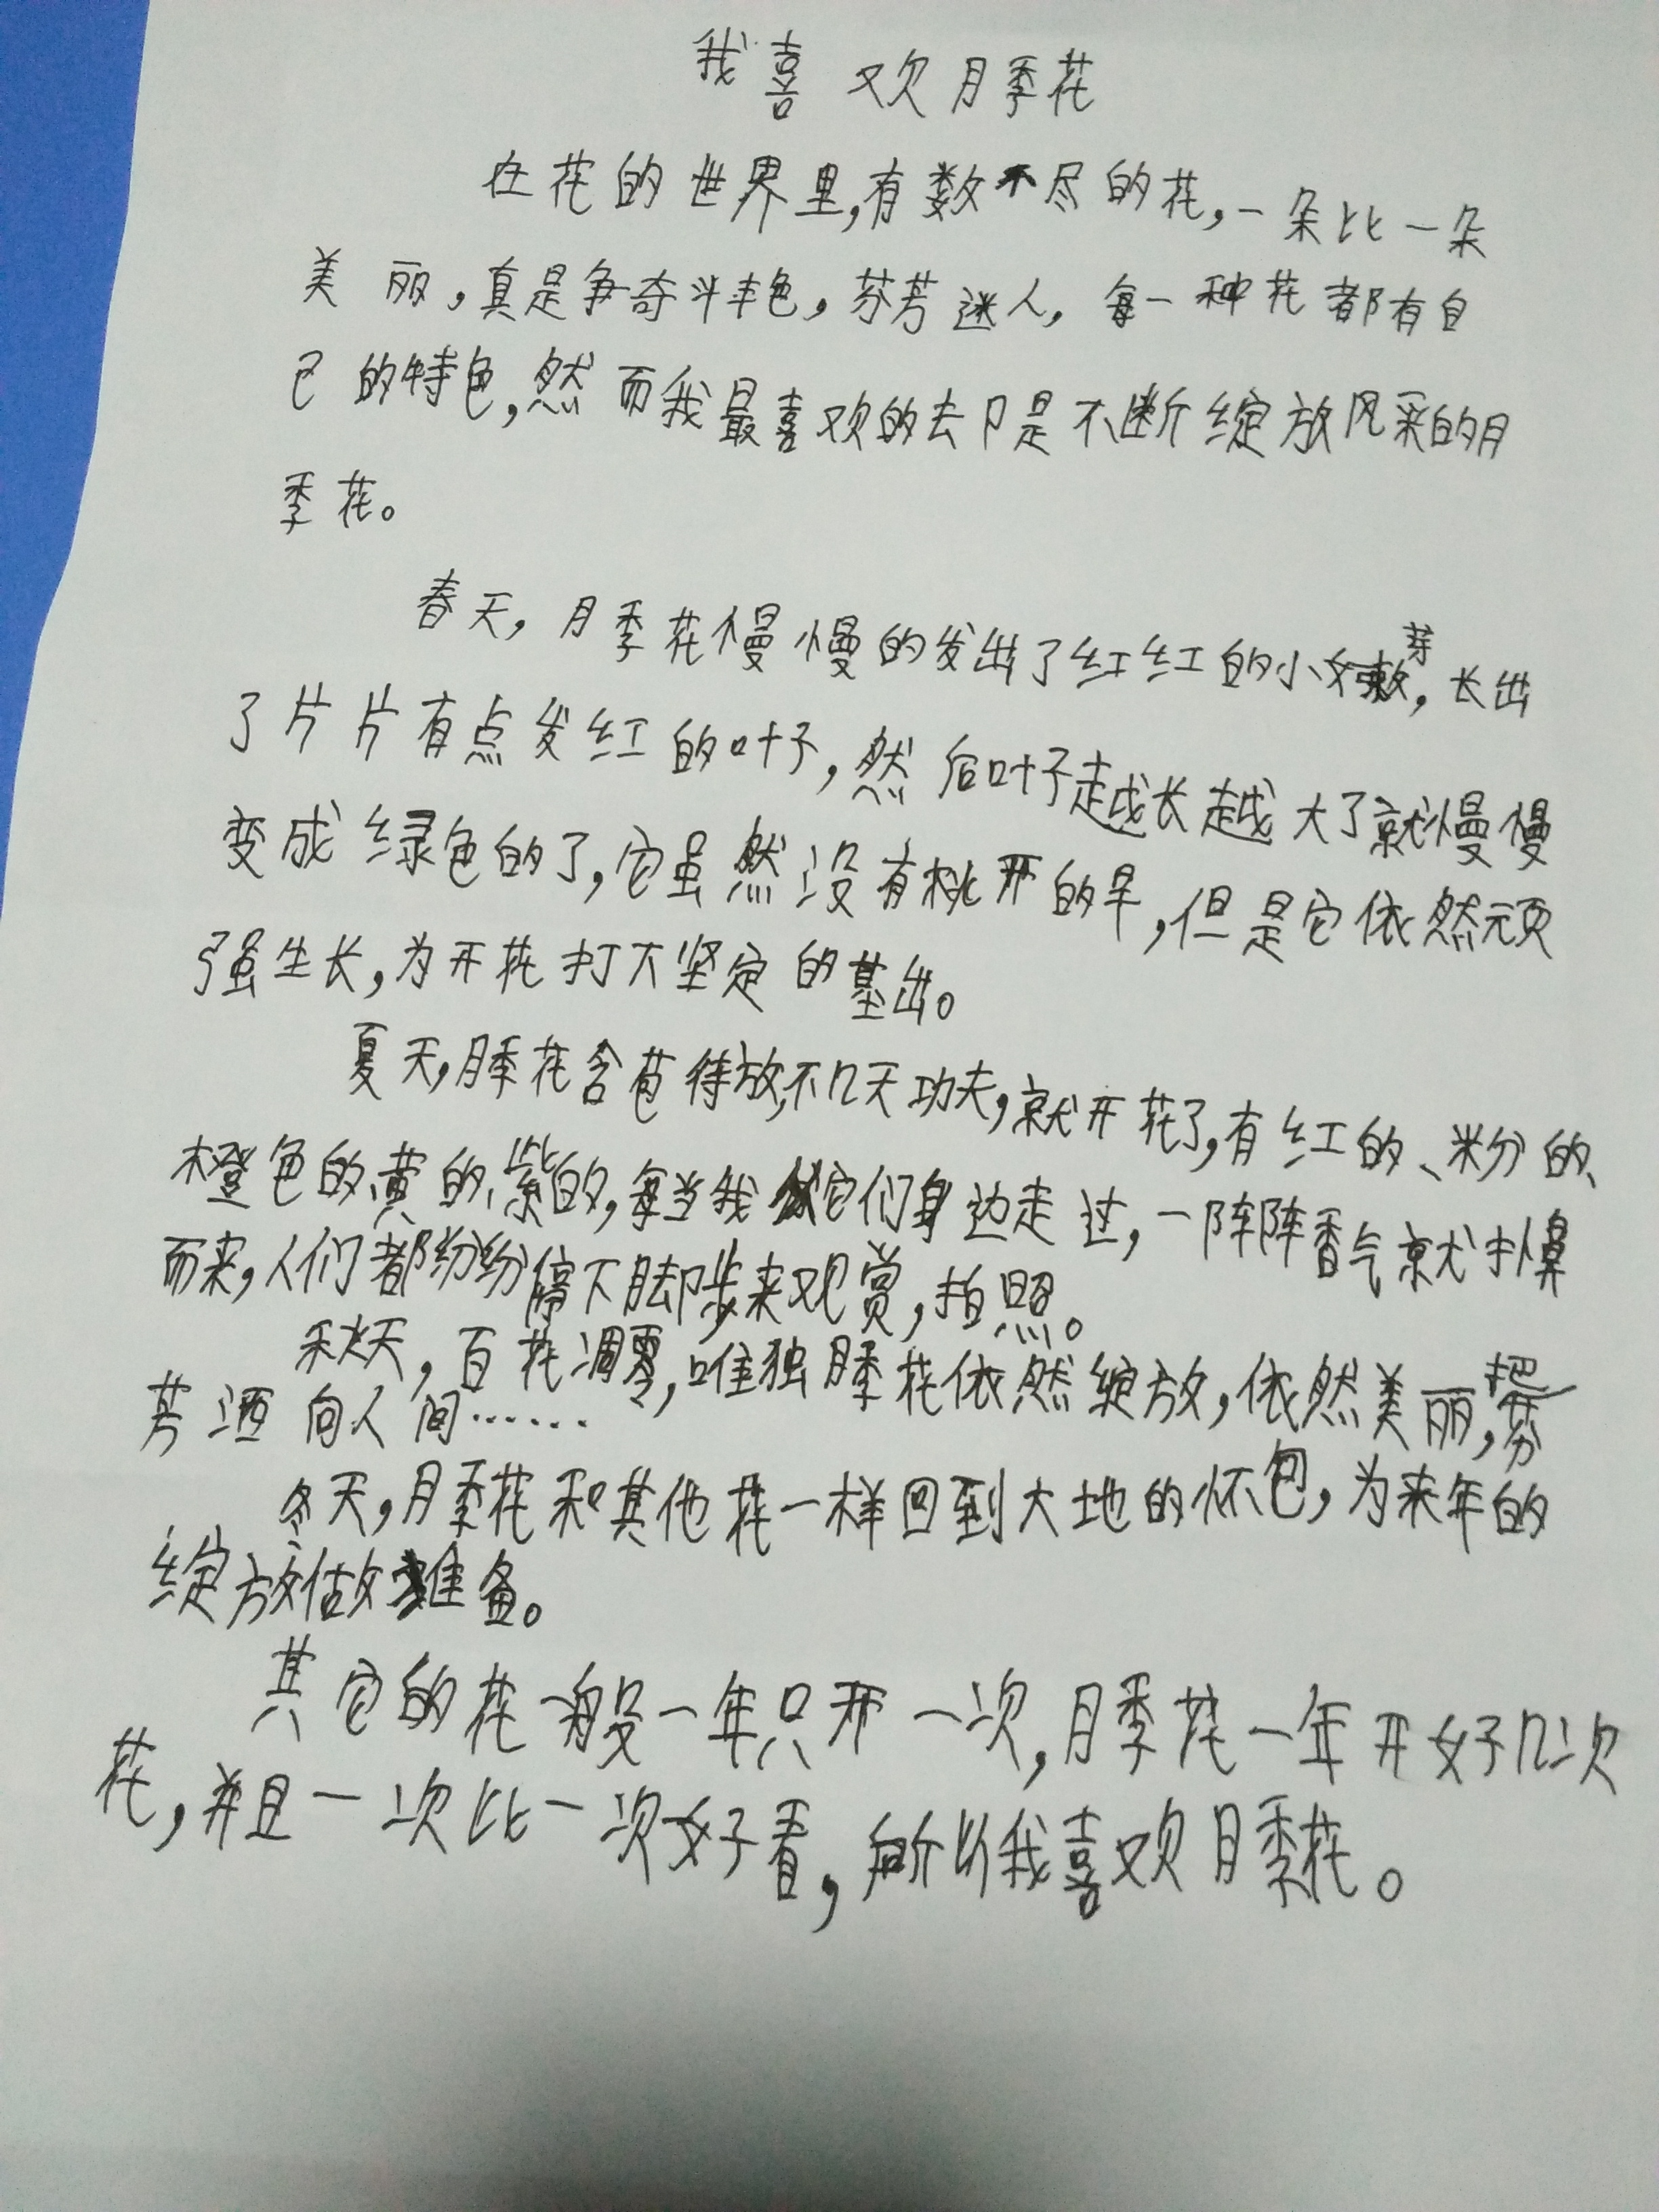 我喜欢月季花
在花的世界里,有数不尽的花,一朵比一朵
美丽,真是争奇斗艳,芬芳迷人,每一种花都有自
己的特色,然而我最喜欢的却是不断绽放风采的月
季花。
春天,月季花慢慢的发出了红红的小嫩芽,长出
了片片有点发红的叶子,然后叶子越长越大了就慢慢
变成绿色的了,它虽然没有桃开的早,但是它依然顽
强生长,为开花打下坚定的基出。
夏天,月季花含苞待放,不几天功夫,就开花了,有红的、粉的、
橙色的、黄的、紫的,每当我从它们身边走过,一阵阵香气就扑鼻
而来,人们都纷纷停下脚步来观赏,拍照。
秋天,百花凋零,唯独月季花依然绽放,依然美丽,把芬
芳洒向人间……
冬天,月季花和其他花一样回到大地的怀包,为来年的
绽放做准备。
其它的花一般一年只开一次,月季花一年开好几次
花,并且一次比一次好看,所以我喜欢月季花。